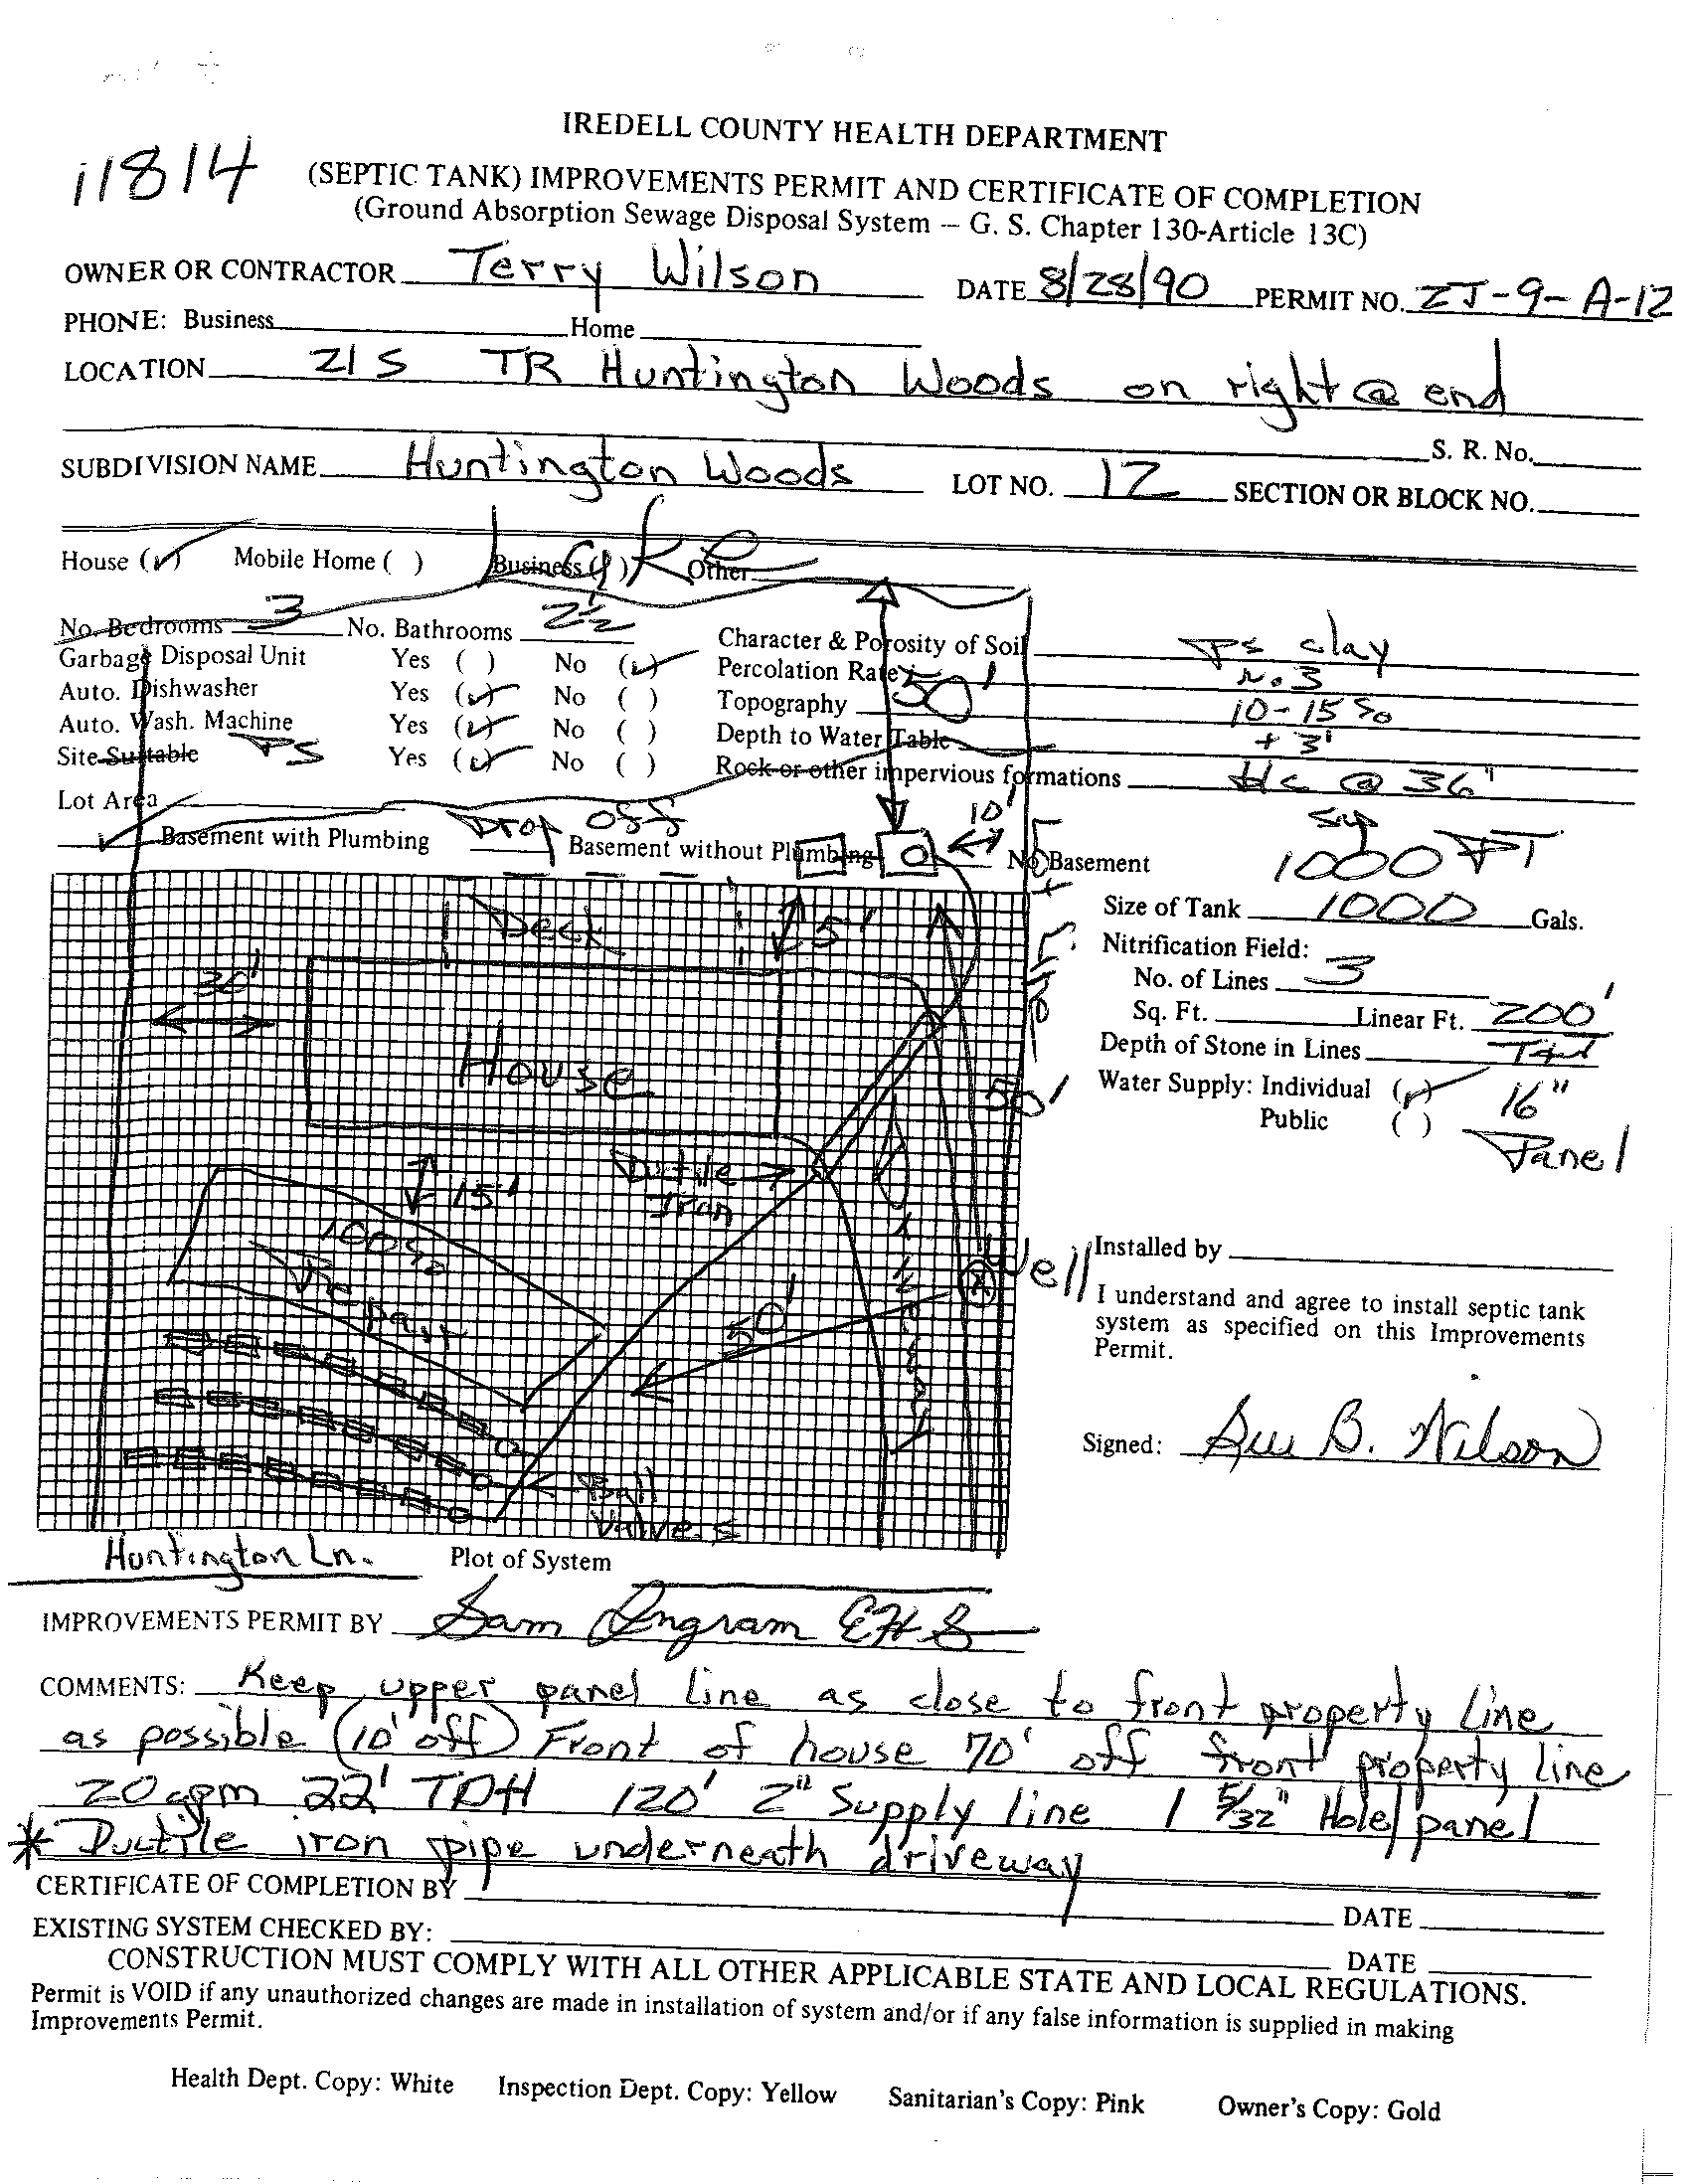 IREDELL COUNTY HEALTH DEPARTMENT
11814
(SEPTIC TANK) IMPROVEMENTS PERMIT AND CERTIFICATE OF COMPLETION
(Ground Absorption Sewage Disposal System — G. S. Chapter 130-Article 13C)
OWNER OR CONTRACTOR Terry Wilson DATE 8/28/90 PERMIT NO. 2J-9-A-12
PHONE: Business Home
LOCATION 21 S TR Huntington Woods on right @ end
S. R. No.
SUBDIVISION NAME Huntington Woods LOT NO. 12 SECTION OR BLOCK NO.
Lake
House (✓) Mobile Home ( ) Business ( ) Other
No. Bedrooms 3 No. Bathrooms 2½
Character & Porosity of Soil PS clay
Garbage Disposal Unit Yes ( ) No (✓)
Percolation Rate no. 3
Auto. Dishwasher Yes (✓) No ( )
Topography 10-15%
50'
Auto. Wash. Machine Yes (✓) No ( )
Depth to Water Table + 3'
Site Suitable PS Yes (✓) No ( )
Rock or other impervious formations @ 36"
Lot Area
Drop off
10'
✓ Basement with Plumbing Basement without Plumbing No Basement
1000 PT
Size of Tank 1000 Gals.
Deck
5'
Nitrification Field:
30'
No. of Lines 3
Sq. Ft. Linear Ft. 200'
Depth of Stone in Lines
House
50'
Water Supply: Individual (✓) 16"
Public ( ) Panel
Ductile Iron
15'
100%
Repair
Well
Installed by
50'
I understand and agree to install septic tank
system as specified on this Improvements
Permit.
Signed: Sue B. Wilson
Ball
Valves
Huntington Ln. Plot of System
IMPROVEMENTS PERMIT BY Sam Ingram EHS
COMMENTS: Keep upper panel line as close to front property line
as possible (10' off) Front of house 70' off front property line
20 gpm 22' TDH 120' 2" Supply line 1 5/32" Hole/panel
* Ductile iron pipe underneath driveway
CERTIFICATE OF COMPLETION BY
DATE
EXISTING SYSTEM CHECKED BY:
DATE
CONSTRUCTION MUST COMPLY WITH ALL OTHER APPLICABLE STATE AND LOCAL REGULATIONS.
Permit is VOID if any unauthorized changes are made in installation of system and/or if any false information is supplied in making
Improvements Permit.
Health Dept. Copy: White Inspection Dept. Copy: Yellow Sanitarian's Copy: Pink Owner's Copy: Gold